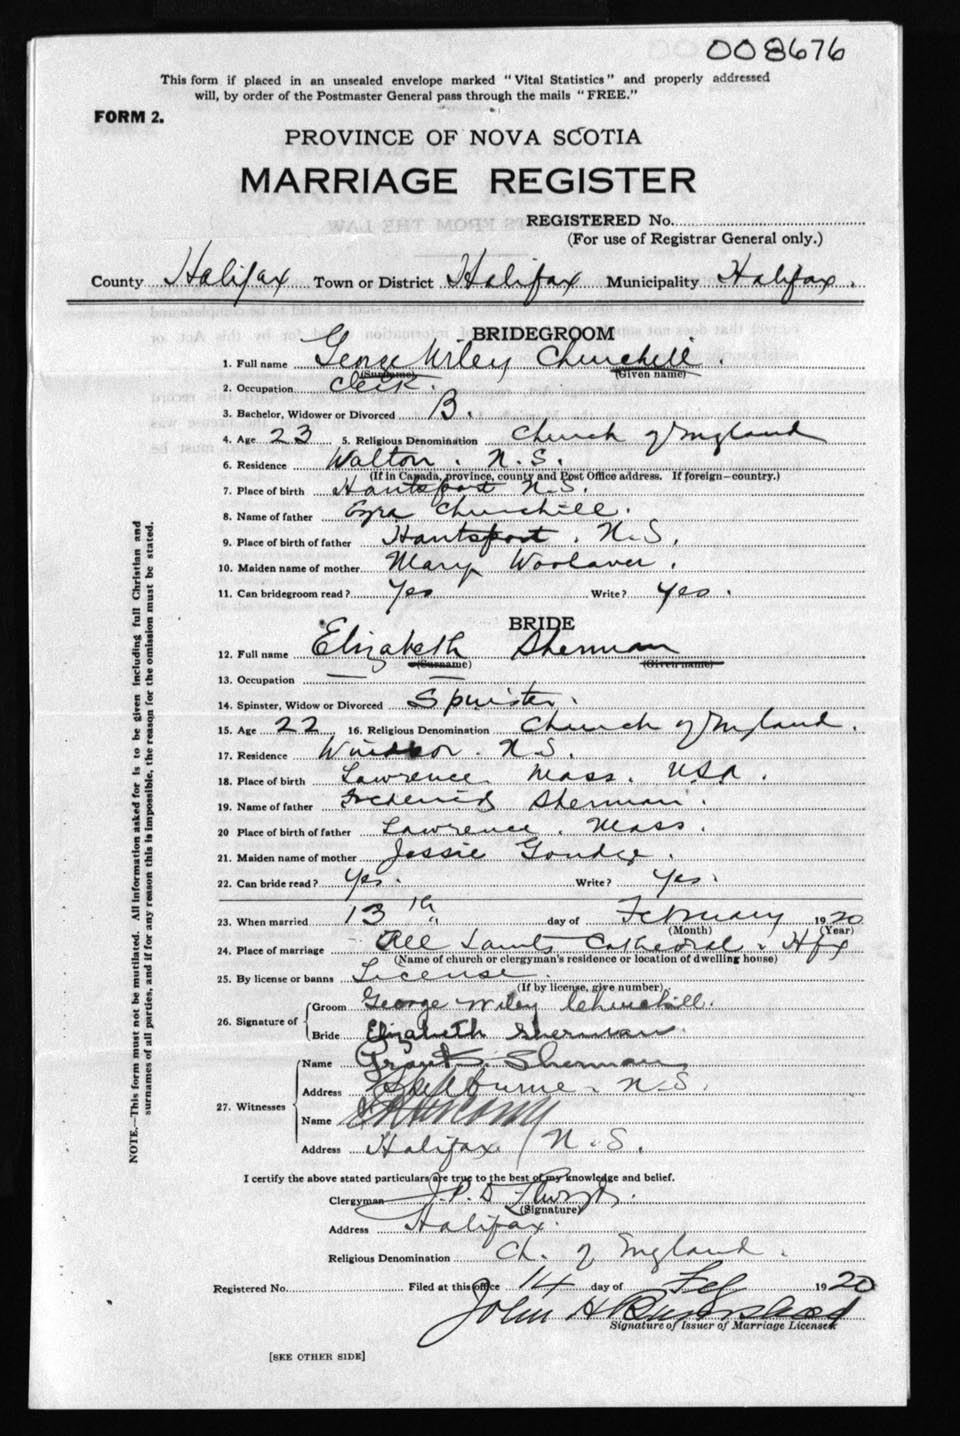 008676
This form if placed in an unsealed envelope marked "Vital Statistics" and properly addressed
will, by order of the Postmaster General pass through the mails "FREE."
FORM 2.
PROVINCE OF NOVA SCOTIA
MARRIAGE REGISTER
REGISTERED No.
(For use of Registrar General only.)
County Halifax Town or District Halifax Municipality Halifax.
BRIDEGROOM
1. Full name George Wiley Churchill.
(Surname) (Given name)
2. Occupation Clerk.
3. Bachelor, Widower or Divorced B.
4. Age 23 5. Religious Denomination Church of England
6. Residence Walton. N.S.
(If in Canada, province, county and Post Office address. If foreign—country.)
7. Place of birth Hantsport N.S.
8. Name of father Ezra Churchill.
9. Place of birth of father Hantsport. N.S.
10. Maiden name of mother Mary Woolaver.
11. Can bridegroom read? Yes Write? Yes.
BRIDE
12. Full name Elizabeth Sherman
(Surname) (Given name)
13. Occupation — —
14. Spinster, Widow or Divorced Spinster.
15. Age 22 16. Religious Denomination Church of England.
17. Residence Windsor. N.S.
18. Place of birth Lawrence Mass. USA.
19. Name of father Frederick Sherman.
20 Place of birth of father Lawrence. Mass.
21. Maiden name of mother Jessie Goudge.
22. Can bride read? Yes. Write? Yes.
23. When married 13th day of February 1920
(Month) (Year)
24. Place of marriage All Saints Cathedral. Hfx
(Name of church or clergyman's residence or location of dwelling house)
25. By license or banns License.
(If by license, give number)
26. Signature of Groom George Wiley Churchill.
Bride Elizabeth Sherman.
27. Witnesses Name Grant S. Sherman
Address Shelburne. N.S.
Name
Address Halifax / N.S.
I certify the above stated particulars are true to the best of my knowledge and belief.
Clergyman J.P.D. Llwyd.
(Signature)
Address Halifax.
Religious Denomination Ch. of England.
Registered No. Filed at this office 14 day of Feb 1920
John H
Signature of Issuer of Marriage Licenses
[SEE OTHER SIDE]
NOTE.—This form must not be mutilated. All information asked for is to be given including full Christian and
surnames of all parties, and if for any reason this is impossible, the reason for the omission must be stated.